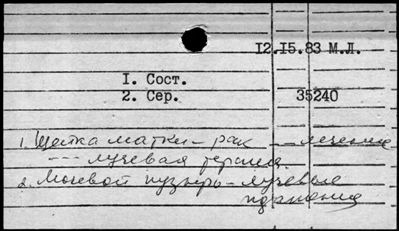 12.15.83 М.Л.
1. Сост.
2. Сер. 35240
1. Шейка матки - рак --- лечение
--- лучевая терапия.
2. Мочевой пузырь - лучевые
поражения